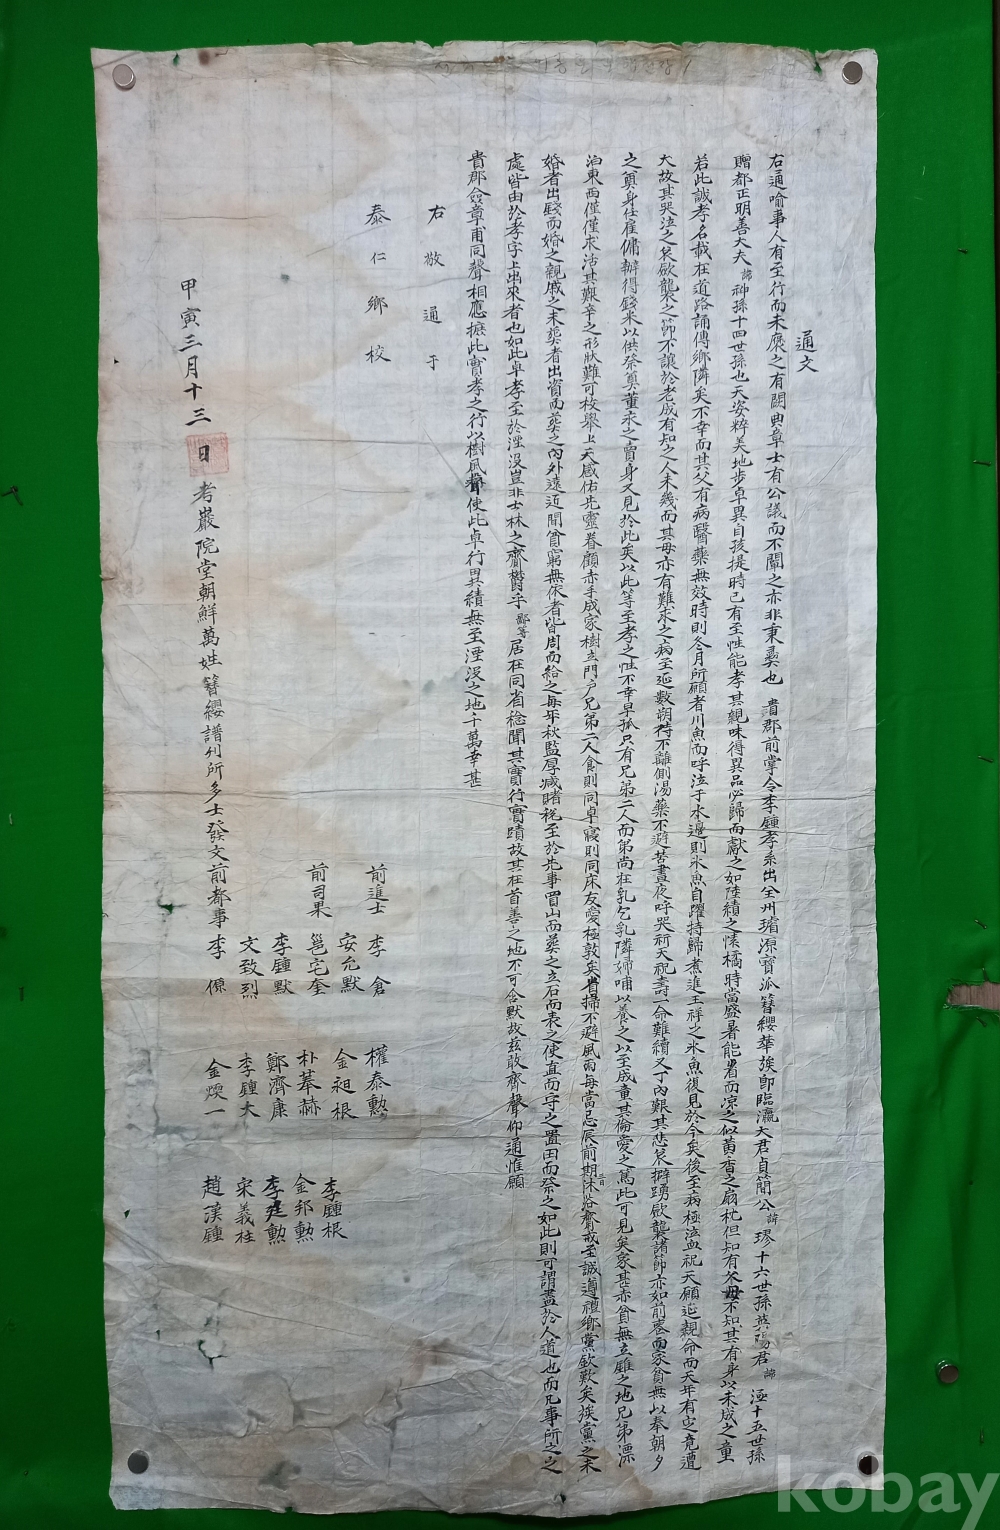 通文
右通喻事人有至行而未褒之有闕典章士有公議而不闡之亦非秉彝也 貴郡前掌令李鍾孝系出全州璿源寶派簪纓華族卽臨瀛大君貞簡公諱璆十六世孫 君諱 十五世孫
贈都正明善大夫諱神孫十四世孫也天姿粹美地步卓異自孩提時已有至性能孝其親味得異品必歸而獻之如陸績之懷橘時當盛暑能暑而凉之似黃香之扇枕但知有父母不知其有身以未成之童
若此誠孝名載在道路誦傳鄕隣矣不幸而其父有病醫藥無效時則冬月所願者川魚而呼泣于水邊則氷魚自躍持歸煮進王祥之氷魚復見於今矣後至病極泣血祝天願延親命而天年有定竟遭
大故其哭泣之哀歛襲之節不讓於老成有知之人未幾而其母亦有難求之病至延數朔待不離側湯藥不避苦晝夜呼哭祈天祝壽一命難續又丁內艱其悲哀擗踊歛襲諸節亦如前喪而家貧無以奉朝夕
之奠身任雇傭辦得錢米以供祭奠董永之賣身又見於此矣以此等至孝之性不幸早孤只有兄弟二人而弟尙在乳乞乳隣婦哺以養之以至成童其倫愛之篤此可見矣家甚赤貧無立錐之地兄弟漂
泊東西僅僅求活其艱辛之形狀難可枚擧上天感佑先靈眷顧赤手成家樹立門戶兄弟二人食則同卓寢則同床友愛極敦矣省掃不避風雨每當忌辰前期三日沐浴齋戒至誠遵禮鄕黨欽歎矣族黨之未
婚者出錢而婚之親戚之未葬者出資而葬之內外遠近聞貧窮無依者皆周而給之每年秋監厚減賭稅至於先事買山而葬之立石而表之使直而守之置田而祭之如此則可謂盡於人道也而凡事所之之
處皆由於孝字上出來者也如此卓孝至於湮沒豈非士林之齎鬱乎鄙等居在同省稔聞其實行實蹟故其在首善之地不可含默故玆敢齊聲仰通惟願
貴郡僉章甫同聲相應攄此實孝之行以樹風聲使此卓行異績無至湮沒之地千萬幸甚
右敬通于
泰仁鄕校
甲寅三月十三日 考巖院堂朝鮮萬姓簪纓譜刊所多士發文前都事李傆
前進士 李倉 權泰勳
安允默 金昶根 李鍾根
前司果 邕宅奎 朴菶赫 金邦勳
李鍾默 鄭濟康 李建勳
文致烈 李鍾大 宋義柱
金煐一 趙漢鍾
kobay